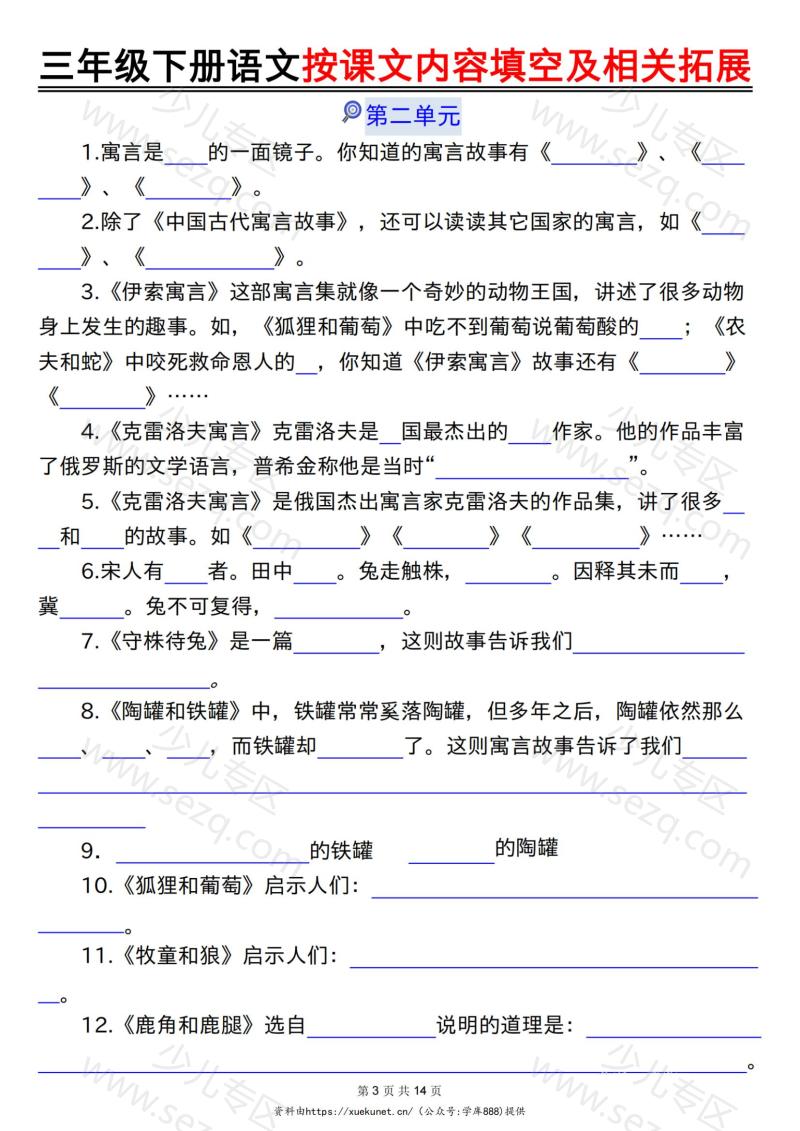 三年级下册语文按课文内容填空及相关拓展
第二单元
1.寓言是____的一面镜子。你知道的寓言故事有《________》、《____
____》、《________》。
2.除了《中国古代寓言故事》，还可以读读其它国家的寓言，如《____
____》、《____________》。
3.《伊索寓言》这部寓言集就像一个奇妙的动物王国，讲述了很多动物
身上发生的趣事。如，《狐狸和葡萄》中吃不到葡萄说葡萄酸的____；《农
夫和蛇》中咬死救命恩人的__，你知道《伊索寓言》故事还有《________》
《________》……
4.《克雷洛夫寓言》克雷洛夫是__国最杰出的____作家。他的作品丰富
了俄罗斯的文学语言，普希金称他是当时“__________________”。
5.《克雷洛夫寓言》是俄国杰出寓言家克雷洛夫的作品集，讲了很多__
__和____的故事。如《__________》《________》《__________》……
6.宋人有____者。田中____。兔走触株，________。因释其未而____，
冀______。兔不可复得，____________。
7.《守株待兔》是一篇________，这则故事告诉我们________________
________________。
8.《陶罐和铁罐》中，铁罐常常奚落陶罐，但多年之后，陶罐依然那么
____、____、____，而铁罐却________了。这则寓言故事告诉了我们______
__________________________________________________________________
__________
9．__________________的铁罐 ________的陶罐
10.《狐狸和葡萄》启示人们：____________________________________
________。
11.《牧童和狼》启示人们：______________________________________
__。
12.《鹿角和鹿腿》选自____________说明的道理是：________________
__________________________________________________________________。
第 3 页 共 14 页
资料由https://xuekunet.cn/（公众号:学库888)提供
少儿专区
www.sezq.com
少儿专区
www.sezq.com
少儿专区
www.sezq.com
少儿专区
www.sezq.com
少儿专区
www.sezq.com
少儿专区
www.sezq.com
少儿专区
www.sezq.com
少儿专区
www.sezq.com